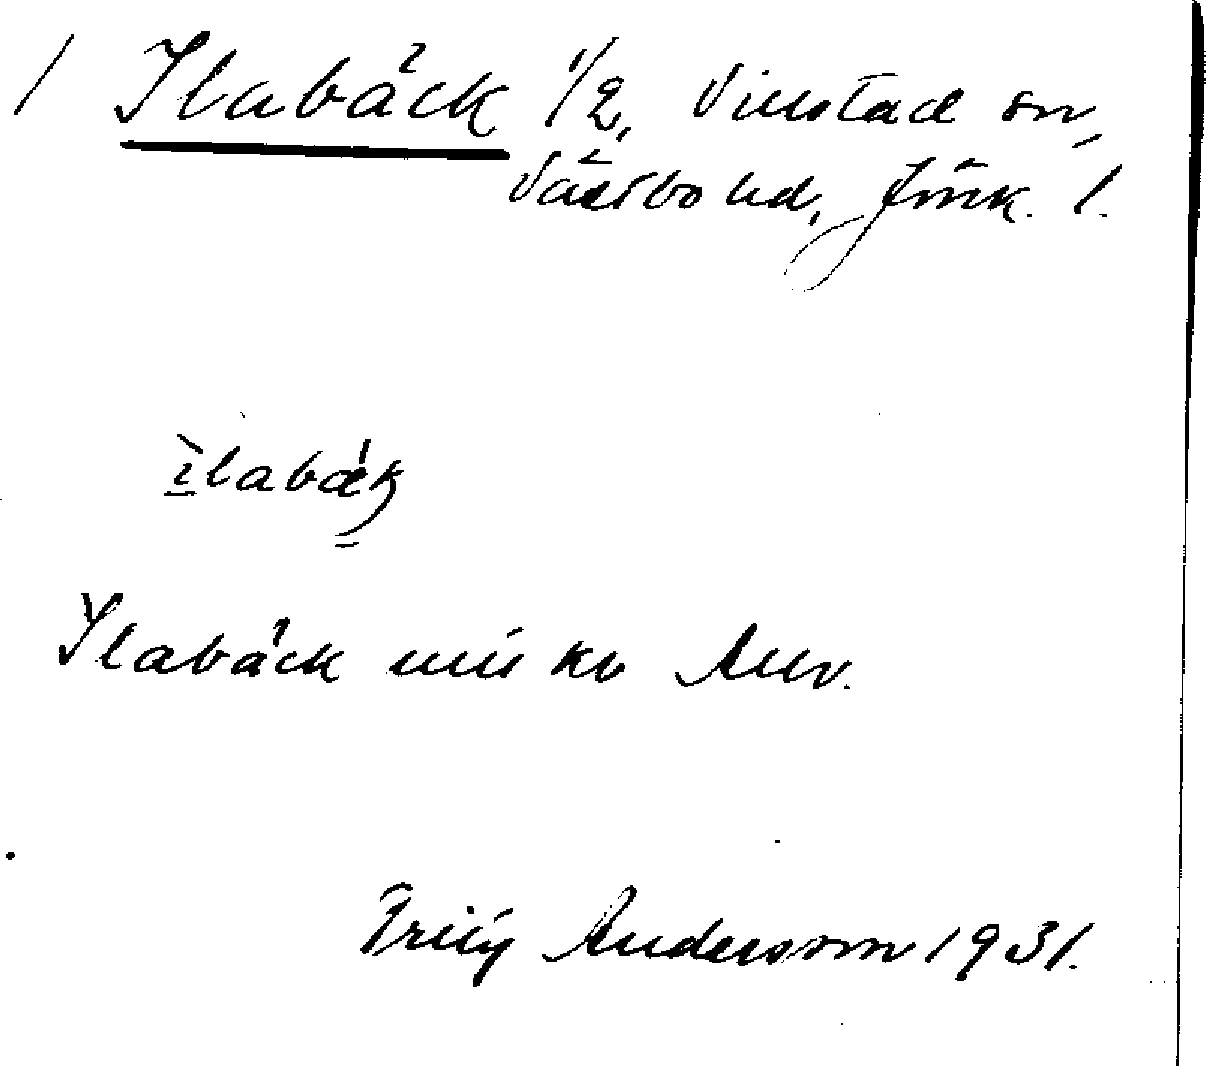 1 Ilabäck 1/2, Villstad sn,
Västbo hd, Jönk. l.
ilabäk
Ilabäck
Fritz Andersson 1931.